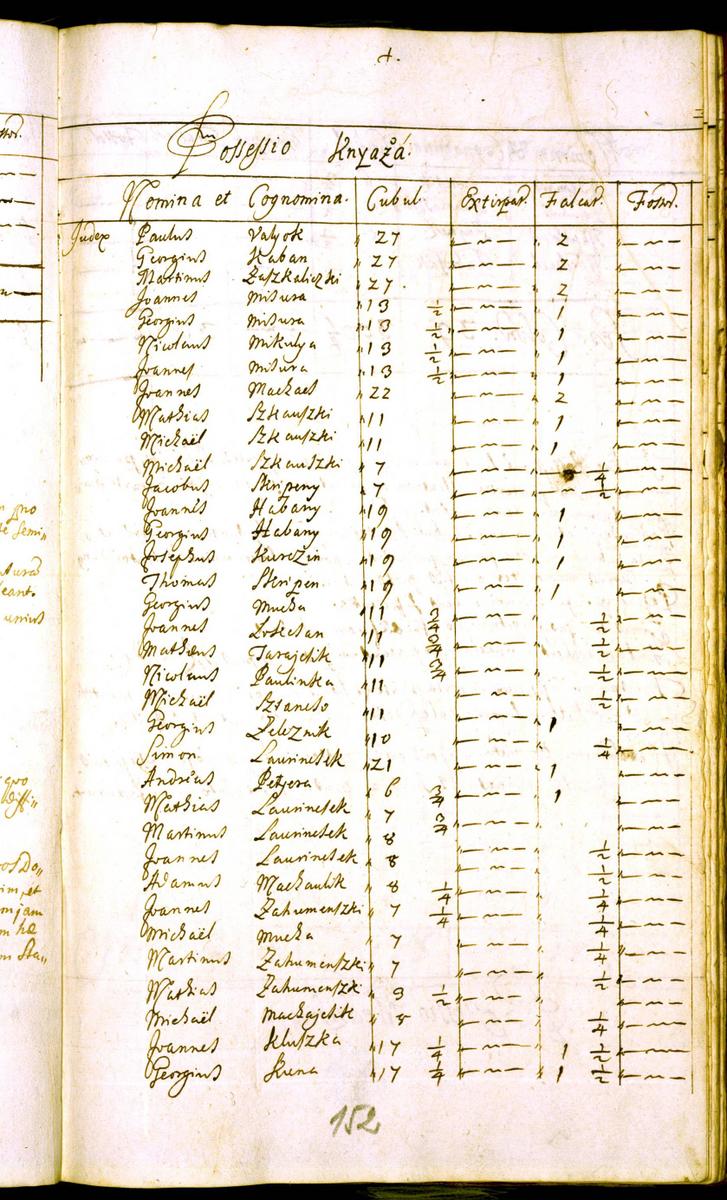 Possessio Knyaźá.
Nomina et Cognomina. Cubul. Extirpat. Falcat. Fossor.
Judex Paulus Valyok 27 2
Georgius Kaban 27 2
Martinus Zaszkaliczki 27 2
Joannes Misura 13 1/2 1
Georgius Misura 13 1/2 1
Nicolaus Mikulya 13 1/2 1
Joannes Misura 13 1/2 1
Joannes 22 2
Mathias Szkauszki 11 1
Michaël Szkauszki 11 1
Michaël Szkauszki 7 1/4
Jacobus Skripeny 7 1/2
Joannes Habany 19 1
Georgius Habany 19 1
Josephus Kurczin 19 1
Thomas Skripen 19 1
Georgius Mucka 11 3/4 1/2
Joannes 11 3/4 1/2
Mathæus Tarajcsik 11 3/4 1/2
Nicolaus Paulinka 11 1/2
Michaël 11 1
Georgius Zeleznik 10 1/4
Simon Laurincsek 21 1
Andreas 6 3/4 1
Mathias Laurincsek 7 3/4
Martinus Laurincsek 8 1/2
Joannes Laurincsek 8 1/2
Adamus Mackaulik 8 1/4 1/4
Joannes Zahumenszki 7 1/4 1/4
Michaël Mucka 7 1/4
Martinus Zahumenszki 7 1/2
Mathias Zahumenszki 9 1/2
Michaël Mackajcsik 8 1/4
Joannes Kluszka 17 1/4 1 1/2
Georgius Kuna 17 1/4 1 1/2
152